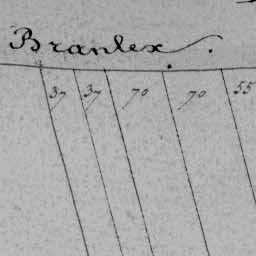 Branlex.
37 37 70 70 55